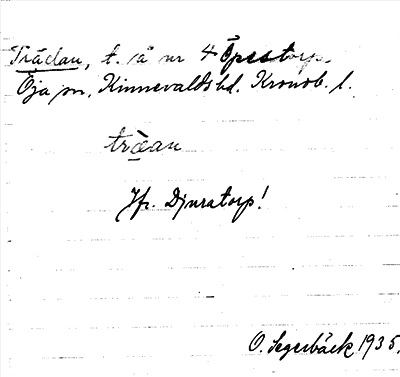 Trädan, t. å nr 4 Öpestorp.
Öja sn, Kinnevalds hd. Kronob. l.
träan
Jfr. Djuratorp!
O. Segerbäck 1935.